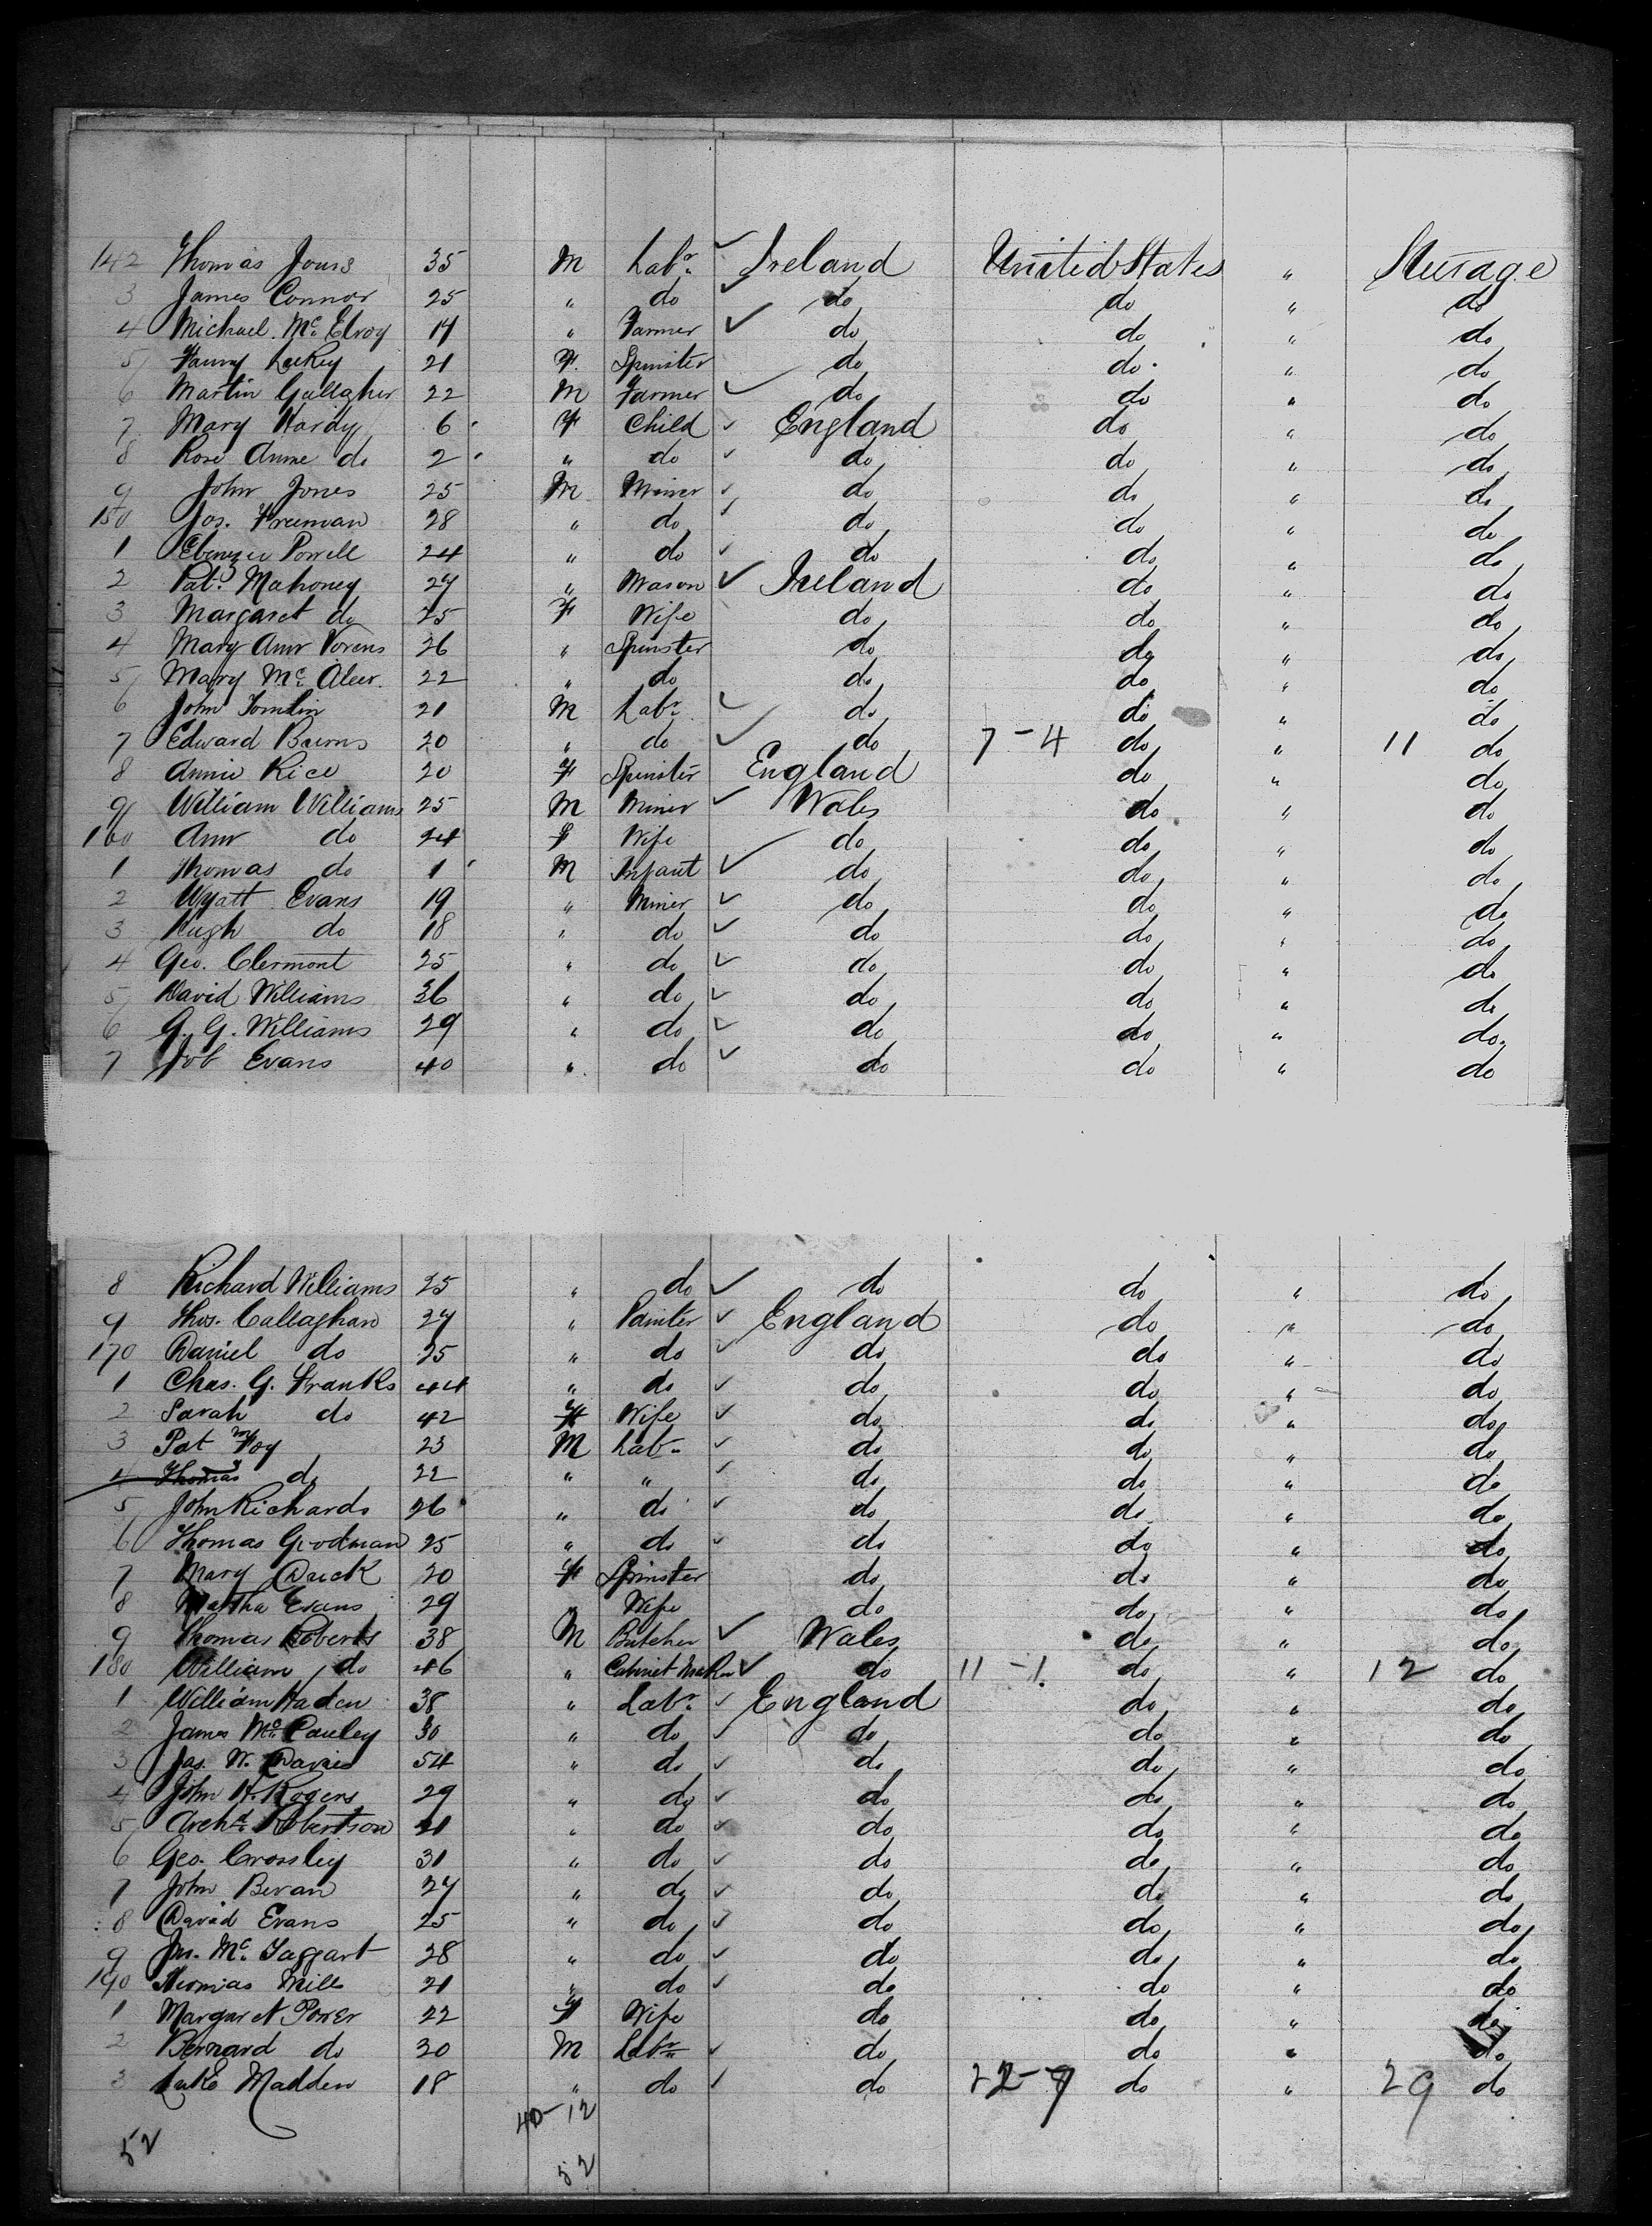 142 Thomas Jones 35 M Labr Ireland United States " Steerage
3 James Connor 25 " do do do " do
4 Michael McElroy 14 " Farmer do do " do
5 Fanny Lackey 21 F. Spinster do do " do
6 Martin Gallagher 22 M Farmer do do " do
7 Mary Hardy 6 F Child England do " do
8 Rose Anne do 2 " do do do " do
9 John Jones 25 M Miner do do " do
150 Jos. Freeman 28 " do do do " do
1 Ebenezer Powell 24 " do do do " do
2 Patk Mahoney 27 " Mason Ireland do " do
3 Margaret do 25 F Wife do do " do
4 Mary Ann 26 " Spinster do do " do
5 Mary McAleer. 22 " do do do " do
6 John Tomlin 21 M Labr do do " do
7 Edward Burns 20 " do do 7-4 do " 11 do
8 Annie Rice 20 F Spinster England do " do
9 William Williams 25 M Miner Wales do " do
160 Ann do 24 F Wife do do " do
1 Thomas do 1 M Infant do do " do
2 Wyatt Evans 19 " Miner do do " do
3 Hugh do 18 " do do do " do
4 Geo. Clermont 25 " do do do " do
5 David Williams 36 " do do do " do
6 G. G. Williams 29 " do do do " do
7 Job Evans 40 " do do do " do
8 Richard Williams 25 " do do do " do
9 Thos. Callaghan 27 " Painter England do " do
170 Daniel do 25 " do do do " do
1 Chas. G. Franks 44 " do do do " do
2 Sarah do 42 F Wife do do " do
3 Pat Foy 23 M Labr do do " do
4 Thomas do 22 " " do do " do
5 John Richards 26 " do do do " do
6 Thomas Goodman 25 " do do do " do
7 Mary 20 F Spinster do do " do
8 Martha Evans 29 " Wife do do " do
9 Thomas Roberts 38 M Butcher Wales do " do
180 William do 46 " Cabinet Maker do 11-1 do " 12 do
1 William Haden 38 " Labr England do " do
2 James McPauley 30 " do do do " do
3 Jas. W. Davies 54 " do do do " do
4 John H. Rogers 29 " do do do " do
5 Archd Robertson 21 " do do do " do
6 Geo. Crossley 31 " do do do " do
7 John Bevan 27 " do do do " do
8 David Evans 25 " do do do " do
9 Jn. McTaggart 28 " do do do " do
190 Mills 21 " do do do " do
1 Margaret Power 22 F Wife do do " do
2 Bernard do 30 M Labr do do " do
3 Luke Madden 18 " do do 22-7 do " 29 do
40-12
52
52